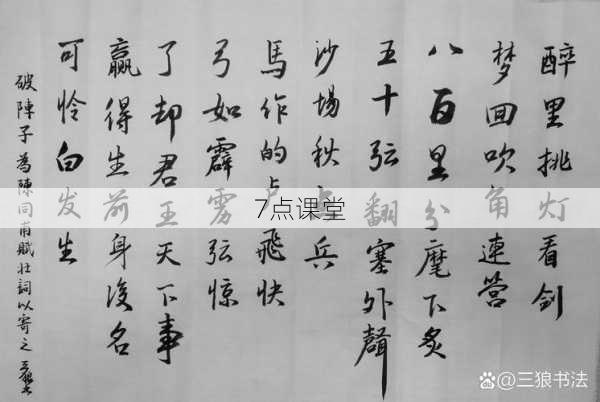 醉里挑灯看剑
梦回吹角連营
八百里分麾下炙
五十弦翻塞外聲
沙場秋点兵
馬作的卢飛快
弓如霹雳弦惊
了却君王天下事
贏得生前身後名
可怜白发生
破陣子為陳同甫賦壮詞以寄之
7点课堂
@三狼书法